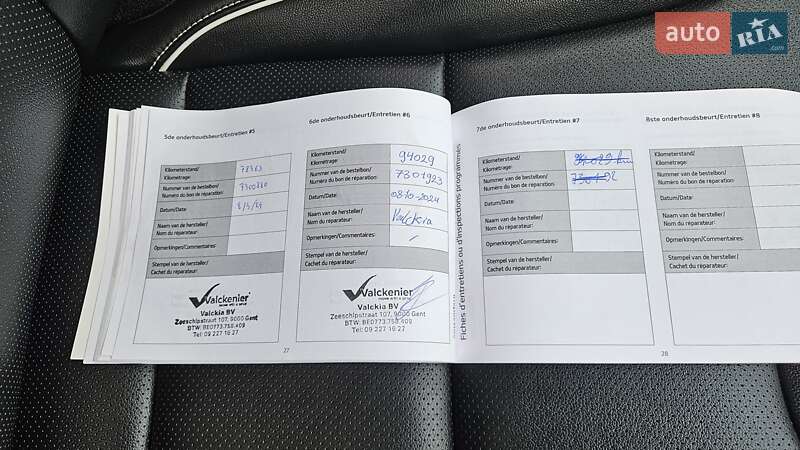 auto RIA .com
5de onderhoudsbeurt/Entretien #5
Kilometerstand/
Kilométrage:
78363
Nummer van de bestelbon/
Numéro du bon de réparation:
Datum/Date:
Naam van de hersteller/
Nom du réparateur:
Opmerkingen/Commentaires:
Stempel van de hersteller/
Cachet du réparateur:
Valckenier
Valckia BV
Zeeschipstraat 107, 9000 Gent
BTW: BE0773.758.409
Tel: 09 227 16 27
27
6de onderhoudsbeurt/Entretien #6
Kilometerstand/
Kilométrage:
94029
Nummer van de bestelbon/
Numéro du bon de réparation:
7301923
Datum/Date:
08-10-2024
Naam van de hersteller/
Nom du réparateur:
Valckia
Opmerkingen/Commentaires:
/
Stempel van de hersteller/
Cachet du réparateur:
Valckenier
Valckia BV
Zeeschipstraat 107, 9000 Gent
BTW: BE0773.758.409
Tel: 09 227 16 27
Fiches d'entretiens ou d'inspections programmés
7de onderhoudsbeurt/Entretien #7
Kilometerstand/
Kilométrage:
94029 km
Nummer van de bestelbon/
Numéro du bon de réparation:
Datum/Date:
Naam van de hersteller/
Nom du réparateur:
Opmerkingen/Commentaires:
Stempel van de hersteller/
Cachet du réparateur:
8ste onderhoudsbeurt/Entretien #8
Kilometerstand/
Kilométrage:
Nummer van de bestelbon/
Numéro du bon de réparation:
Datum/Date:
Naam van de hersteller/
Nom du réparateur:
Opmerkingen/Commentaires:
Stempel van de hersteller/
Cachet du réparateur:
28